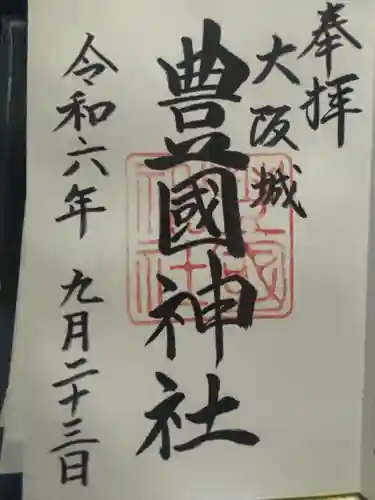 奉拝
大阪城
豊國神社
令和六年 九月二十三日
豊國神社